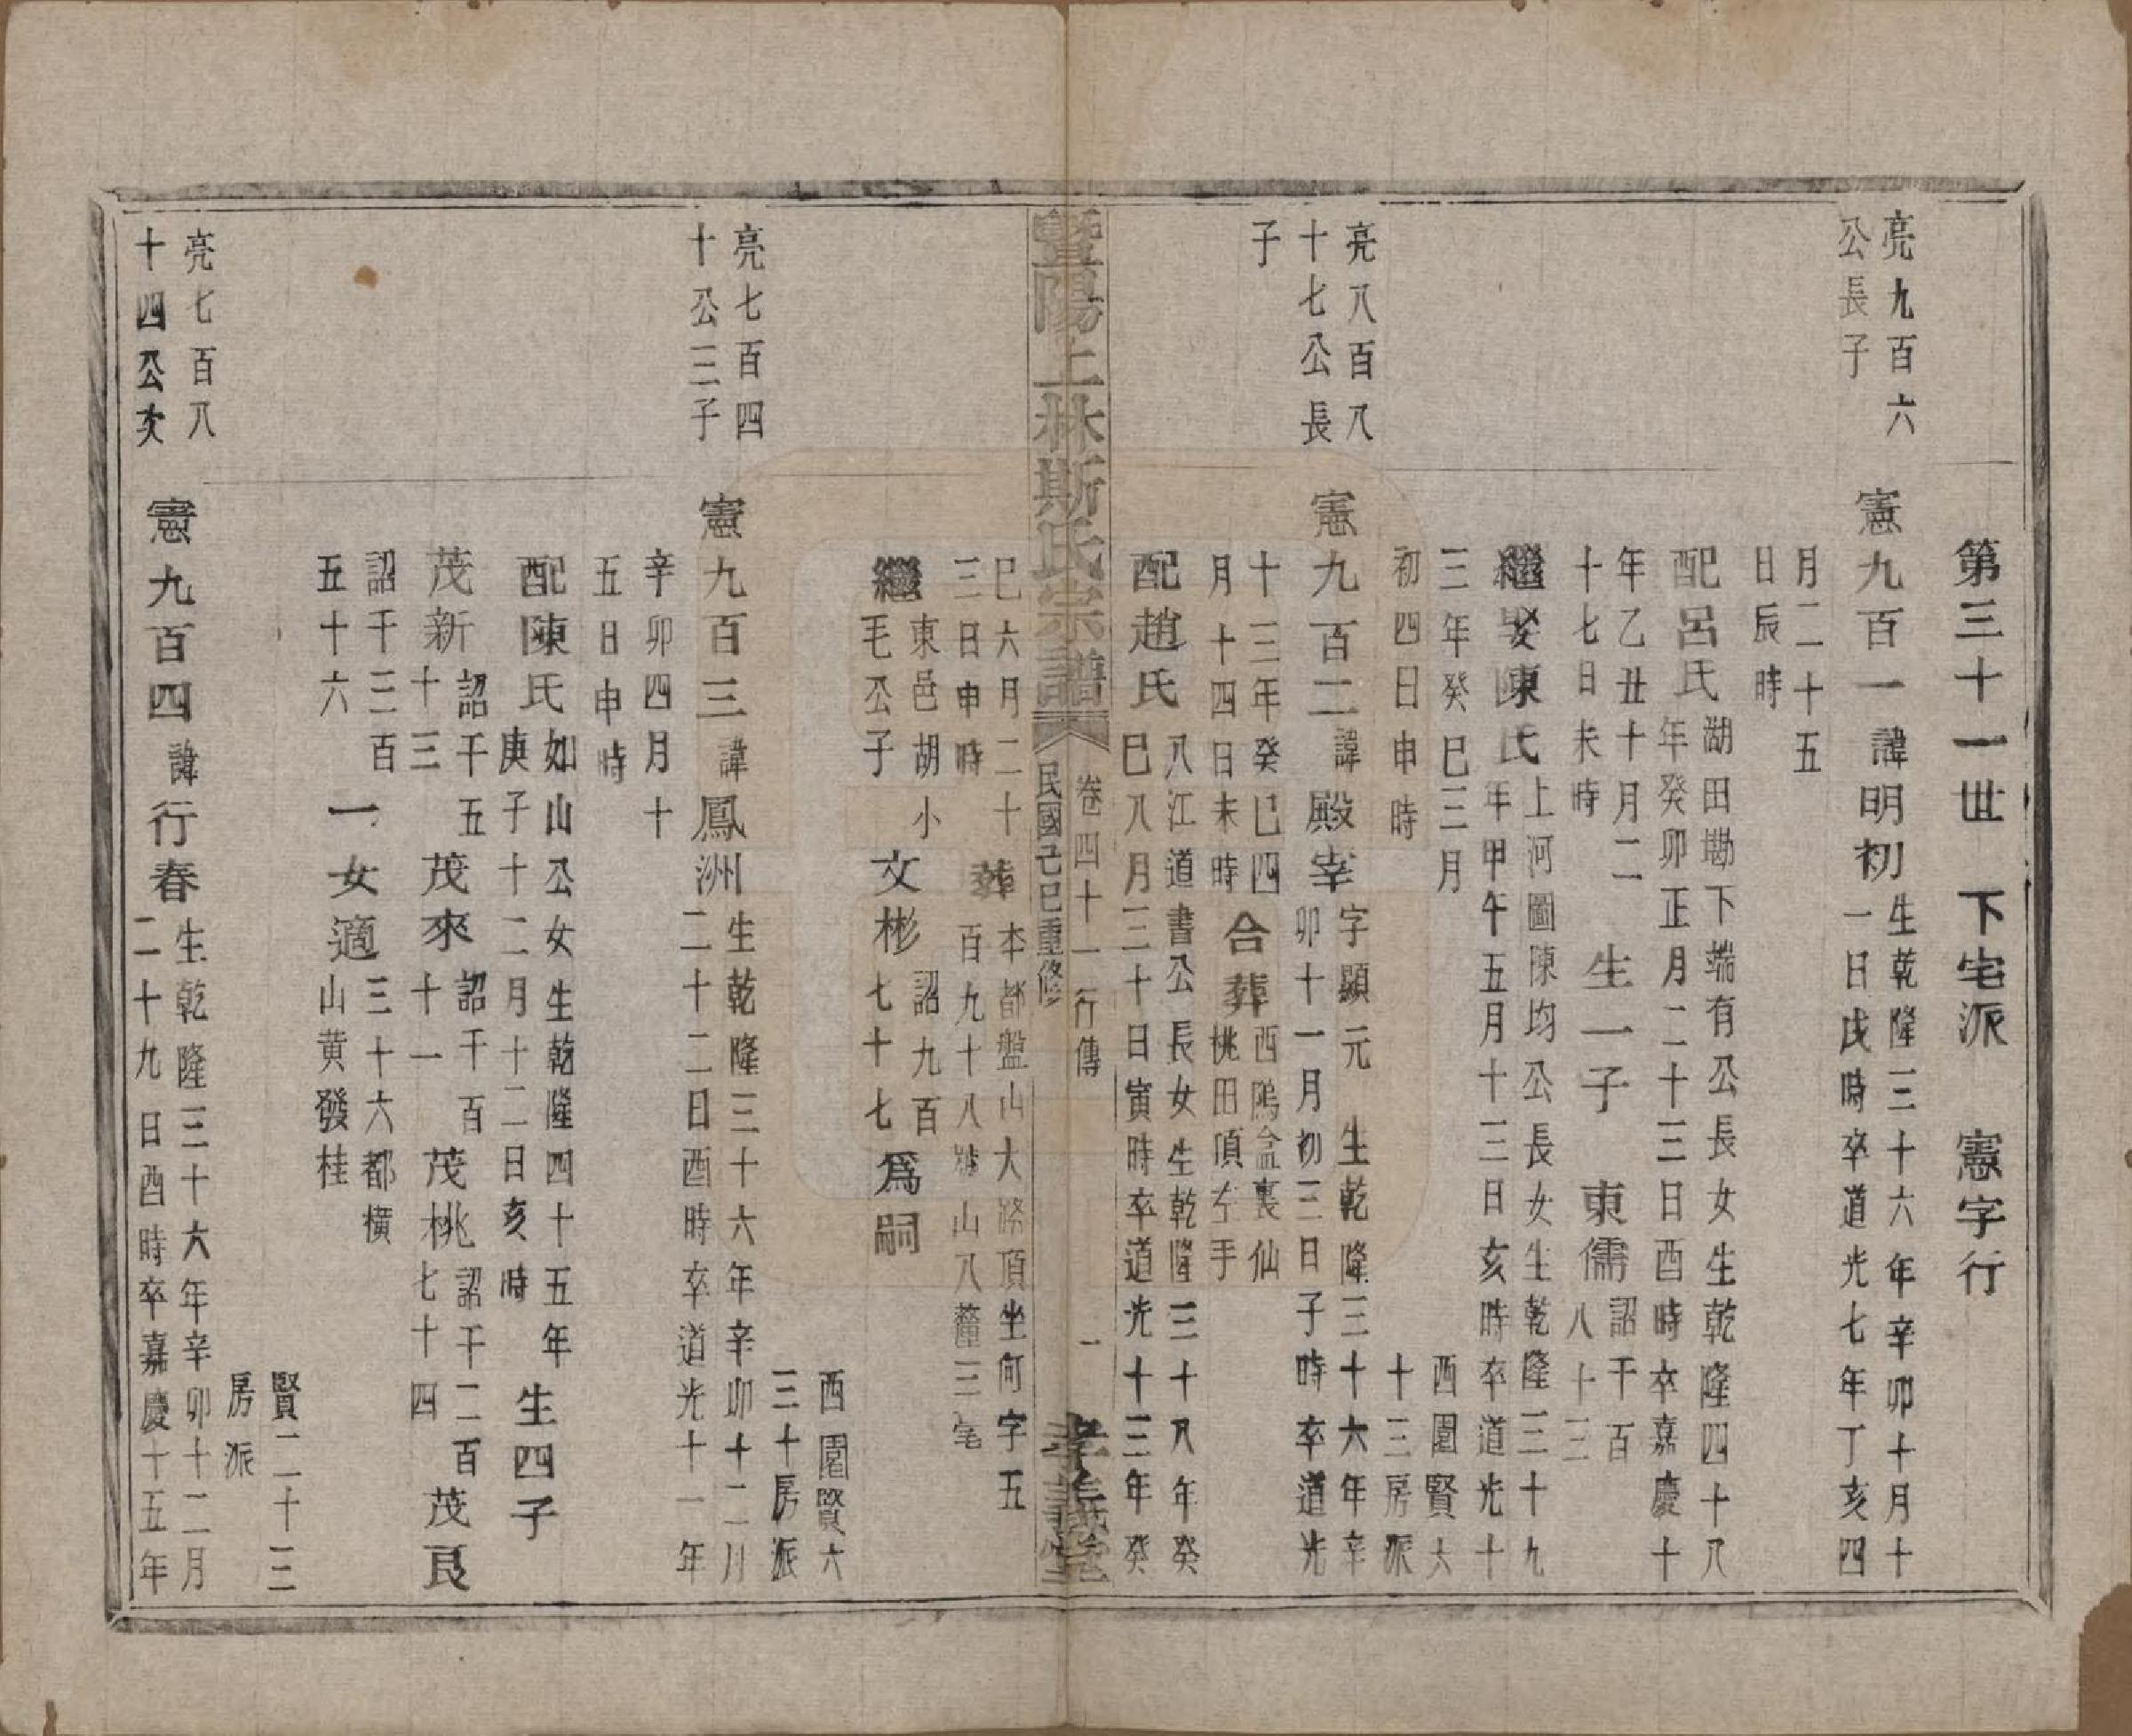 第三十一世　下宅派　憲字行
亮九百六
公長子
憲九百一諱明初
生乾隆三十六年辛卯十月十
一日戌時卒道光七年丁亥四
月二十五
日辰時
配呂氏
湖田勘下端有公長女生乾隆四十八
年癸卯正月二十三日酉時卒嘉慶十
年乙丑十月二
十七日未時
生一子
東儒
詔千百
八十三
繼娶陳氏
上河圖陳均公長女生乾隆三十九
年甲午五月十三日亥時卒道光十
三年癸巳三月
初四日申時
西園賢六
十三房派
亮八百八
十七公長
子
憲九百二諱殿宰
字顯元　生乾隆三十六年辛
卯十一月初三日子時卒道光
十三年癸巳四
月十四日未時
合葬
西鵶盆裏仙
桃田頂左手
配趙氏
八江道書公長女生乾隆三十八年癸
巳八月三十日寅時卒道光十三年癸
暨陽上林斯氏宗譜
卷四十一　行傳　一
民國己巳重修
孝義堂
巳六月二十
三日申時
葬
本都盤山大路頂坐向字五
百九十八號山八釐三毫
繼
東邑胡小
毛公子
文彬
詔九百
七十七
爲嗣
西園賢六
三十房派
亮七百四
十公三子
憲九百三諱鳳洲
生乾隆三十六年辛卯十二月
二十二日酉時卒道光十一年
辛卯四月十
五日申時
配陳氏
如山公女生乾隆四十五年
庚子十二月十二日亥時
生四子
茂新
詔千五
十三
茂來
詔千百
十一
茂桃
詔千二百
七十四
茂良
詔千三百
五十六
一女適
三十六都橫
山黃發桂
賢二十三
房派
亮七百八
十四公次
憲九百四諱行春
生乾隆三十六年辛卯十二月
二十九日酉時卒嘉慶十五年